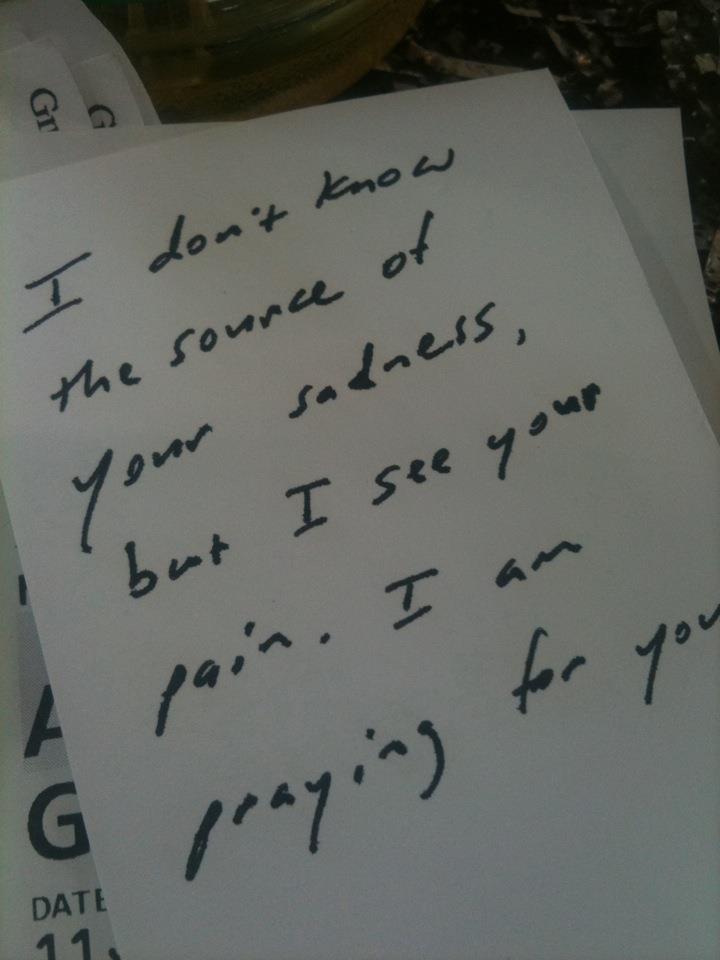 Gr
G
I don't know
the source of
your sadness,
but I see your
pain. I am
praying for you
A
G
DATE
11.